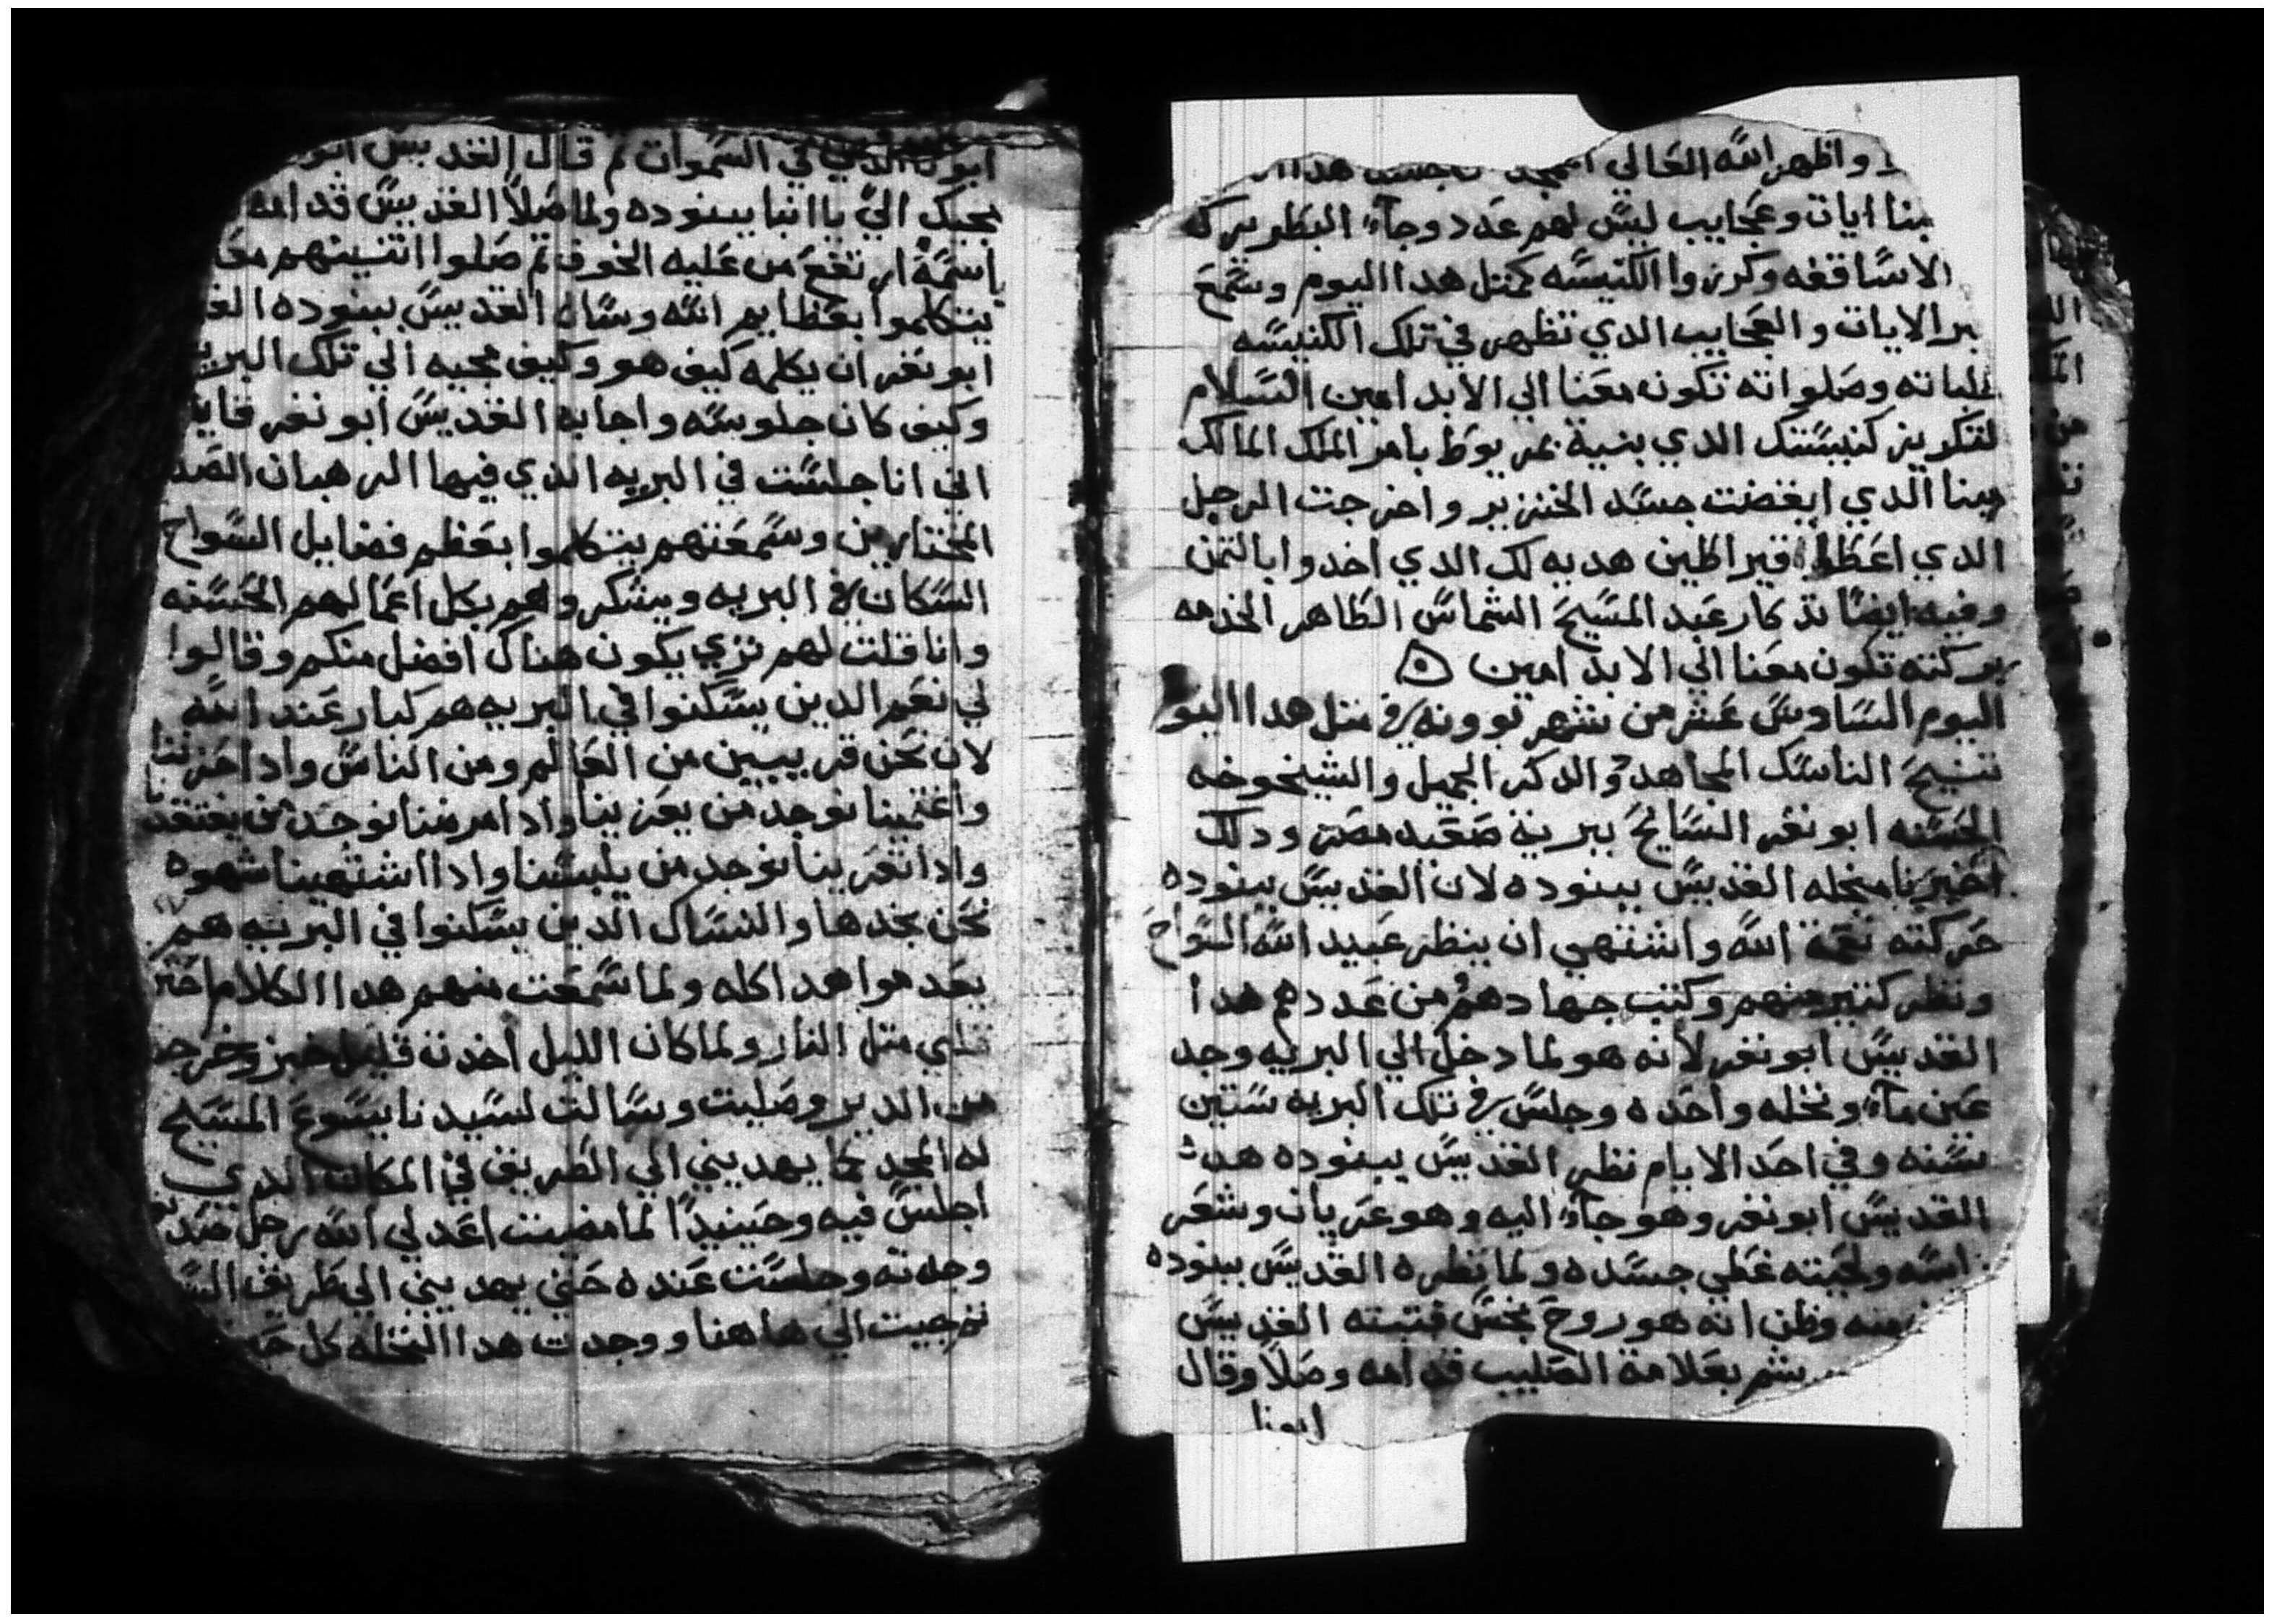 واظهر الله تعالي جسد هدا
بنا ايات وعجايب ليس لهم عدد وجآء البطريركه
الاساقفه وكرزوا الكنيسه كمتل هدا اليوم وسمع
بر الايات والعجايب الدي تظهر في تلك الكنيسه
طلباته وصلواته تكون معنا الي الابد امين السلام
لتكريز كنيستك الدي بنية بمريوط بامر الملك المالك
مينا الدي ابغضت جسد الخنزير واخرجت الرجل
الدي اعطا قيراطين هديه لك الدي اخدوا بالتمن
وفيه ايضا تدكار عبد المسيح الشماس الطاهر الخدمه
بركته تكون معنا الي الابد امين
اليوم السادس عشر من شهر بوونه في متل هدا اليو
تنيح الناسك المجاهد والدكر الجميل والشيخوخه
الحسنه ابو نفر السايح ببرية صعيد مصر ودلك
اخبرنا منجله القديس ببنوده لان القديس ببنوده
حركته نعمة الله واشتهي ان ينظر عبيد الله السواح
ونظر كتير منهم وكتب جهادهم من عددهم هدا
القديس ابو نفر لانه هو لما دخل الي البريه وجد
عين مآء ونخله واحده وجلس في تلك البريه ستين
سنه وفي احد الايام نظر القديس ببنوده هدا
القديس ابو نفر وهو جآء اليه وهو عريان وشعر
راسه ولحيته غطي جسده ولما نظره القديس ببنوده
منه وظن انه هو روح نجس فتبته القديس
رشم بعلامة الصليب قدامه وصلا وقال
ابونا
ابونا الدي في السموات تم قال القديس ابو
بجيك الي يا انبا ببنوده ولما صلا القديس قدامه
باسمة ارتفع من عليه الخوف تم صلوا اتنينهم معا
يتكلموا بعظايم الله وسال القديس ببنوده القد
ابو نفر ان يكلمه كيف هو وكيف مجيه الي تلك البريه
وكيف كان جلوسه واجابه القديس ابو نفر قايلا
اني انا جلست في البريه الدي فيها الرهبان الصد
المختارين وسمعتهم يتكلموا بعظم فضايل السواح
السكان في البريه ويشكروهم بكل اعمالهم الحسنه
وانا قلت لهم تري يكون هناك افضل منكم وقالوا
لي نعم الدين يسكنوا في البريه هم كبار عند الله
لان نحن قريبين من العالم ومن الناس وادا حزننا
واغتمينا نوجد من يعزينا وادا مرضنا نوجد من يفتقدنا
وادا تعرينا نوجد من يلبسنا وادا اشتهينا شهوه
نحن نجدها والنساك الدين يسكنوا في البريه هم
بعدموا هدا كله ولما سمعت منهم هدا الكلام احتر
قلبي متل النار ولما كان الليل اخدت قليل خبز وخرجت
من الدير وصليت وسالت لسيدنا يسوع المسيح
له المجد كما يهديني الي الطريق في المكان الدي
اجلس فيه وحينيدا لما مضيت اعد لي الله رجل صد
وجدته وجلست عنده حتي يهديني الي طريق الس
تم جيت الي هاهنا ووجدت هدا النخله كل